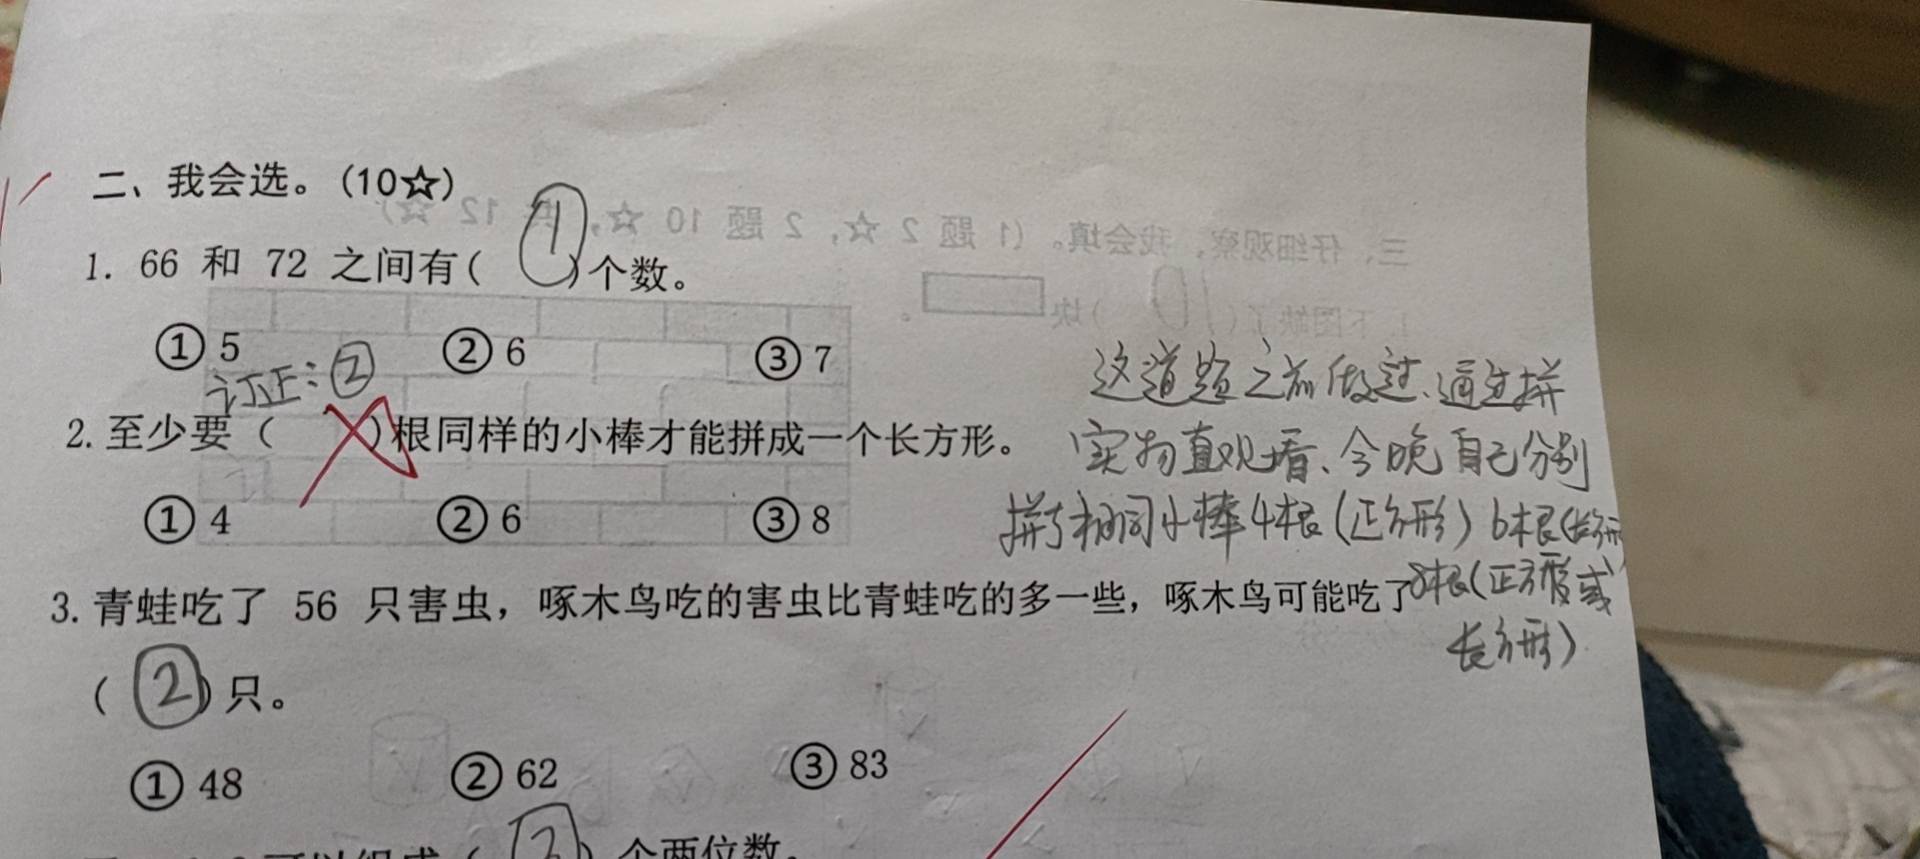 二、我会选。(10☆)
三、仔细观察,我会填。(1 题 2 ☆, 2 题 10 ☆, 共 12 ☆)
1. 66 和 72 之间有( ① )个数。
1. 下图缺了(10)块 。
① 5 ② 6 ③ 7
订正:②
2. 至少要( )根同样的小棒才能拼成一个长方形。
① 4 ② 6 ③ 8
这道题之前做过、通过拼
实物直观看、今晚自己分别
拼了相同小棒4根(正方形)6根(长方形
8根(正方形或
长方形)
3. 青蛙吃了 56 只害虫,啄木鸟吃的害虫比青蛙吃的多一些,啄木鸟可能吃了
( ② )只。
① 48 ② 62 ③ 83
个两位数。